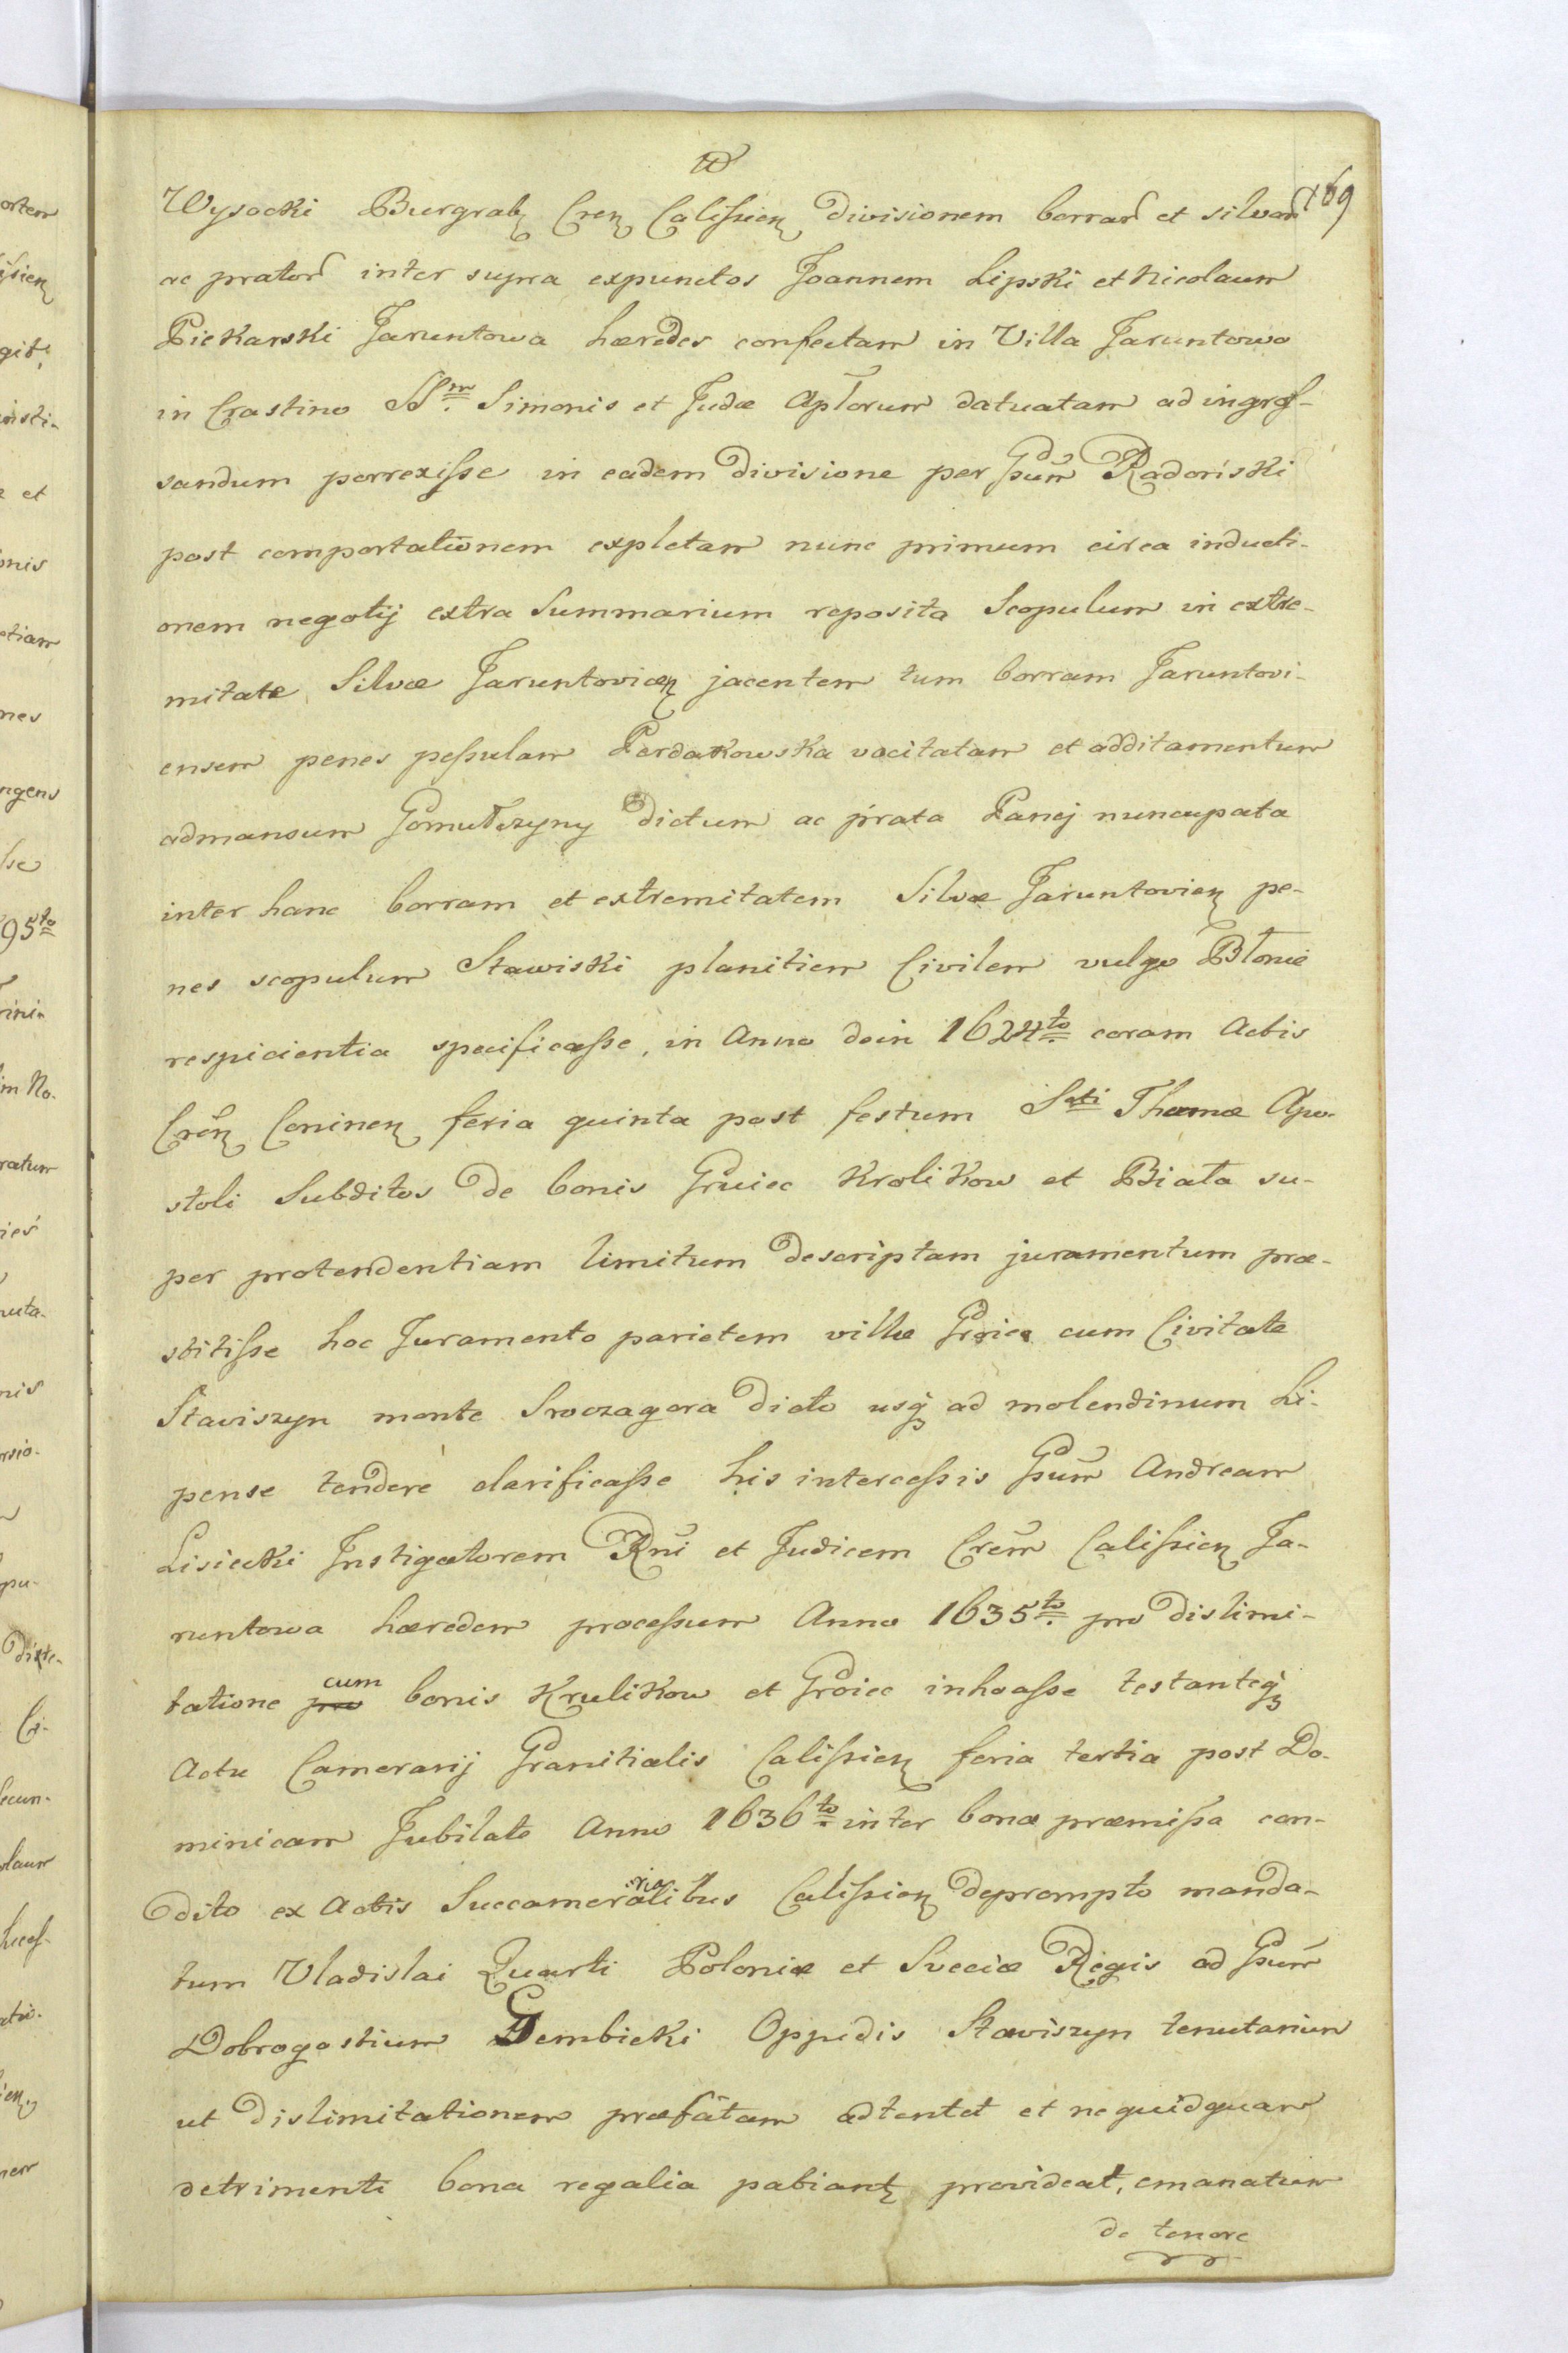 169
Wysocki Burgrab Cren Calissien divisionem borrar et silvar
ac prator inter supra expunctos Joannem Lipski et Nicolaum
Piekarski Jaruntowa hæredes confectam in Villa Jaruntowo
in Crastino SS<sup>m</sup>. Simonis et Judæ Aplorum datuatam ad ingros-
sandum porrexisse in eadem divisione per Gsum Radoński
post comportationem expletam nunc primum circa inducti-
onem negotij extra Summarium reposita Scopulum in extre-
mitate Silvæ Jaruntovicen jacentem tum borram Jaruntovi-
ensem penes pessulam Perdakowska vocitatam et additamentum
admansum Gomułczyny dictum ac prata Paniej nuncupata
inter hanc borram et extremitatem Silvæ Jaruntovien pe-
nes scopulum Stawiski planitiem Civilem vulgo Błonie
respicientia specificasse, in Anno dein 1624<sup>to</sup> coram Actis
Cren Coninen feria quinta post festum S<sup>cti</sup> Thomæ Apo-
stoli Subditos de bonis Gruiec Krolikow et Biała su-
per protendentiam limitum descriptam juramentum præ-
stitisse hoc Juramento parietem villæ Groiec cum Civitate
Stawiszyn monte Sroczagora dicto usq ad molendinum Li-
pense tendere clarificasse his intercessis Gsum Andream
Lisiecki Instigatorem Rni et Judicem Crem Calissien Ja-
runtowa hæredem processum Anno 1635<sup>to</sup>. pro dislimi-
tatione <s>pro</s> cum bonis Krulikow et Groiec inhoasse testanteq
Actu Camerarij Granitialis Calissien feria tertia post Do-
minicam Jubilate Anno 1636<sup>to</sup> inter bona præmissa con-
dito ex Actis Succamerarialibus Calissien deprompto manda-
tum Vladislai Quarti Poloniæ et Sveciæ Regis ad Gsum
Dobrogostium Gembicki Oppidis Stawiszyn tenutarium
ut dislimitationem præfatam adtentet et nequidquam
detrimenti bona regalia patiant provideat, emanatum
de tenore